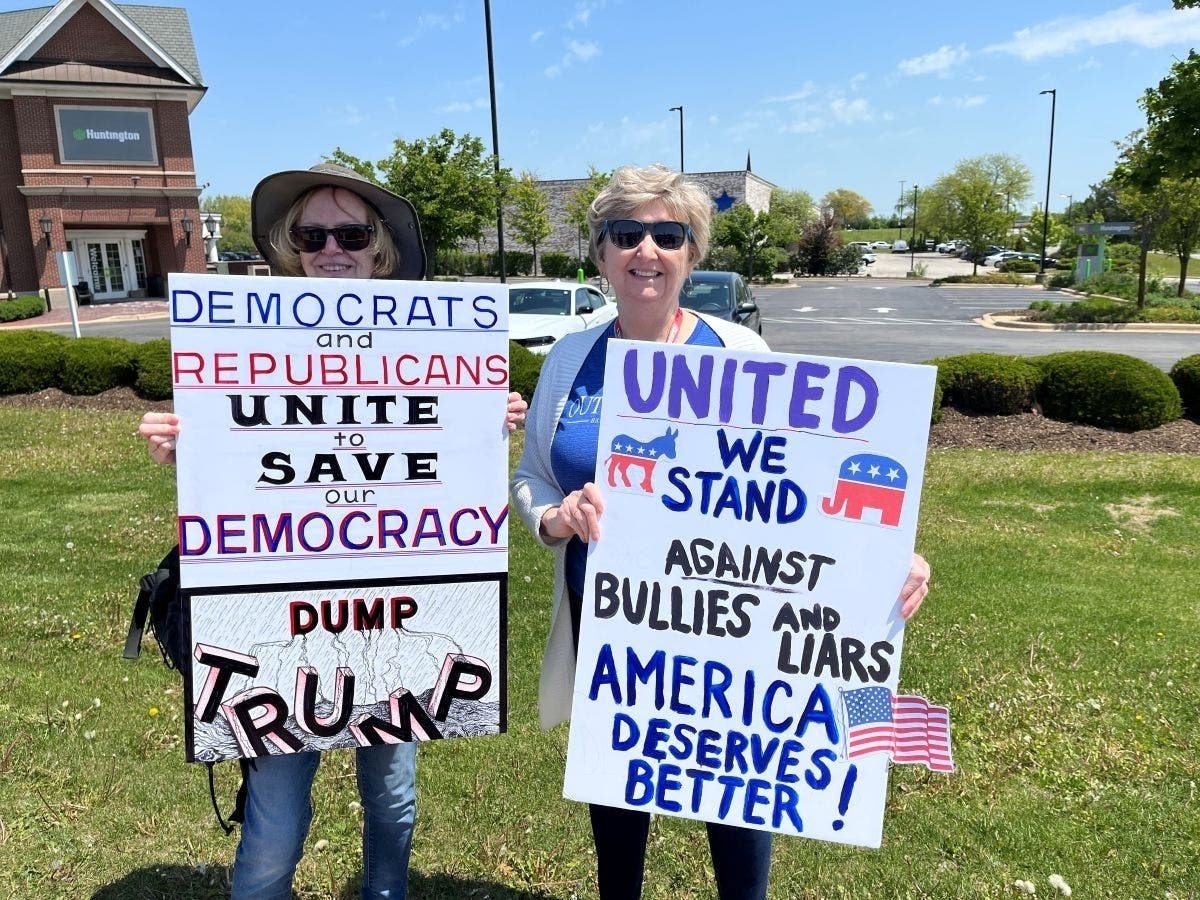 Huntington
Welcome
DEMOCRATS
and
REPUBLICANS
UNITE
to
SAVE
our
DEMOCRACY
DUMP
TRUMP
UNITED
WE
STAND
AGAINST
BULLIES AND
LIARS
AMERICA
DESERVES
BETTER!